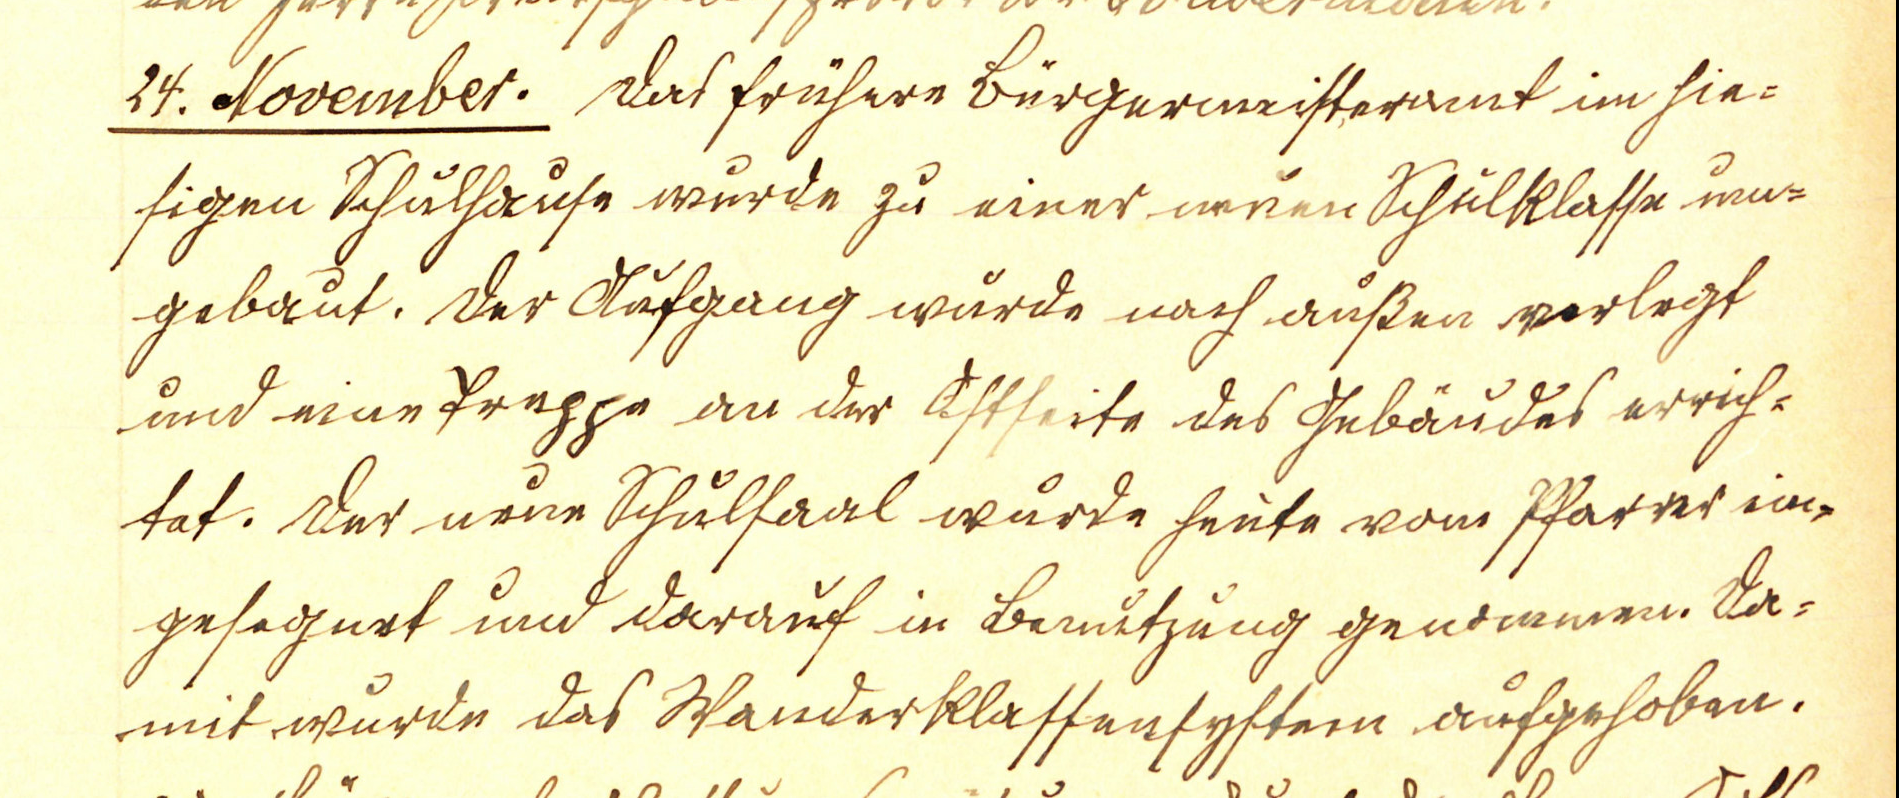 24. November. Das frühere Bürgermeisteramt im hie-
sigen Schulhause wurde zu einer neuen Schulklasse um-
gebaut. Der Aufgang wurde nach außen verlegt
und eine Treppe an der Ostseite des Gebäudes errich-
tet. Der neue Schulsaal wurde heute vom Pfarrer ein-
gesegnet und darauf in Benutzung genommen. Da-
mit wurde das Wanderklassensystem aufgehoben.